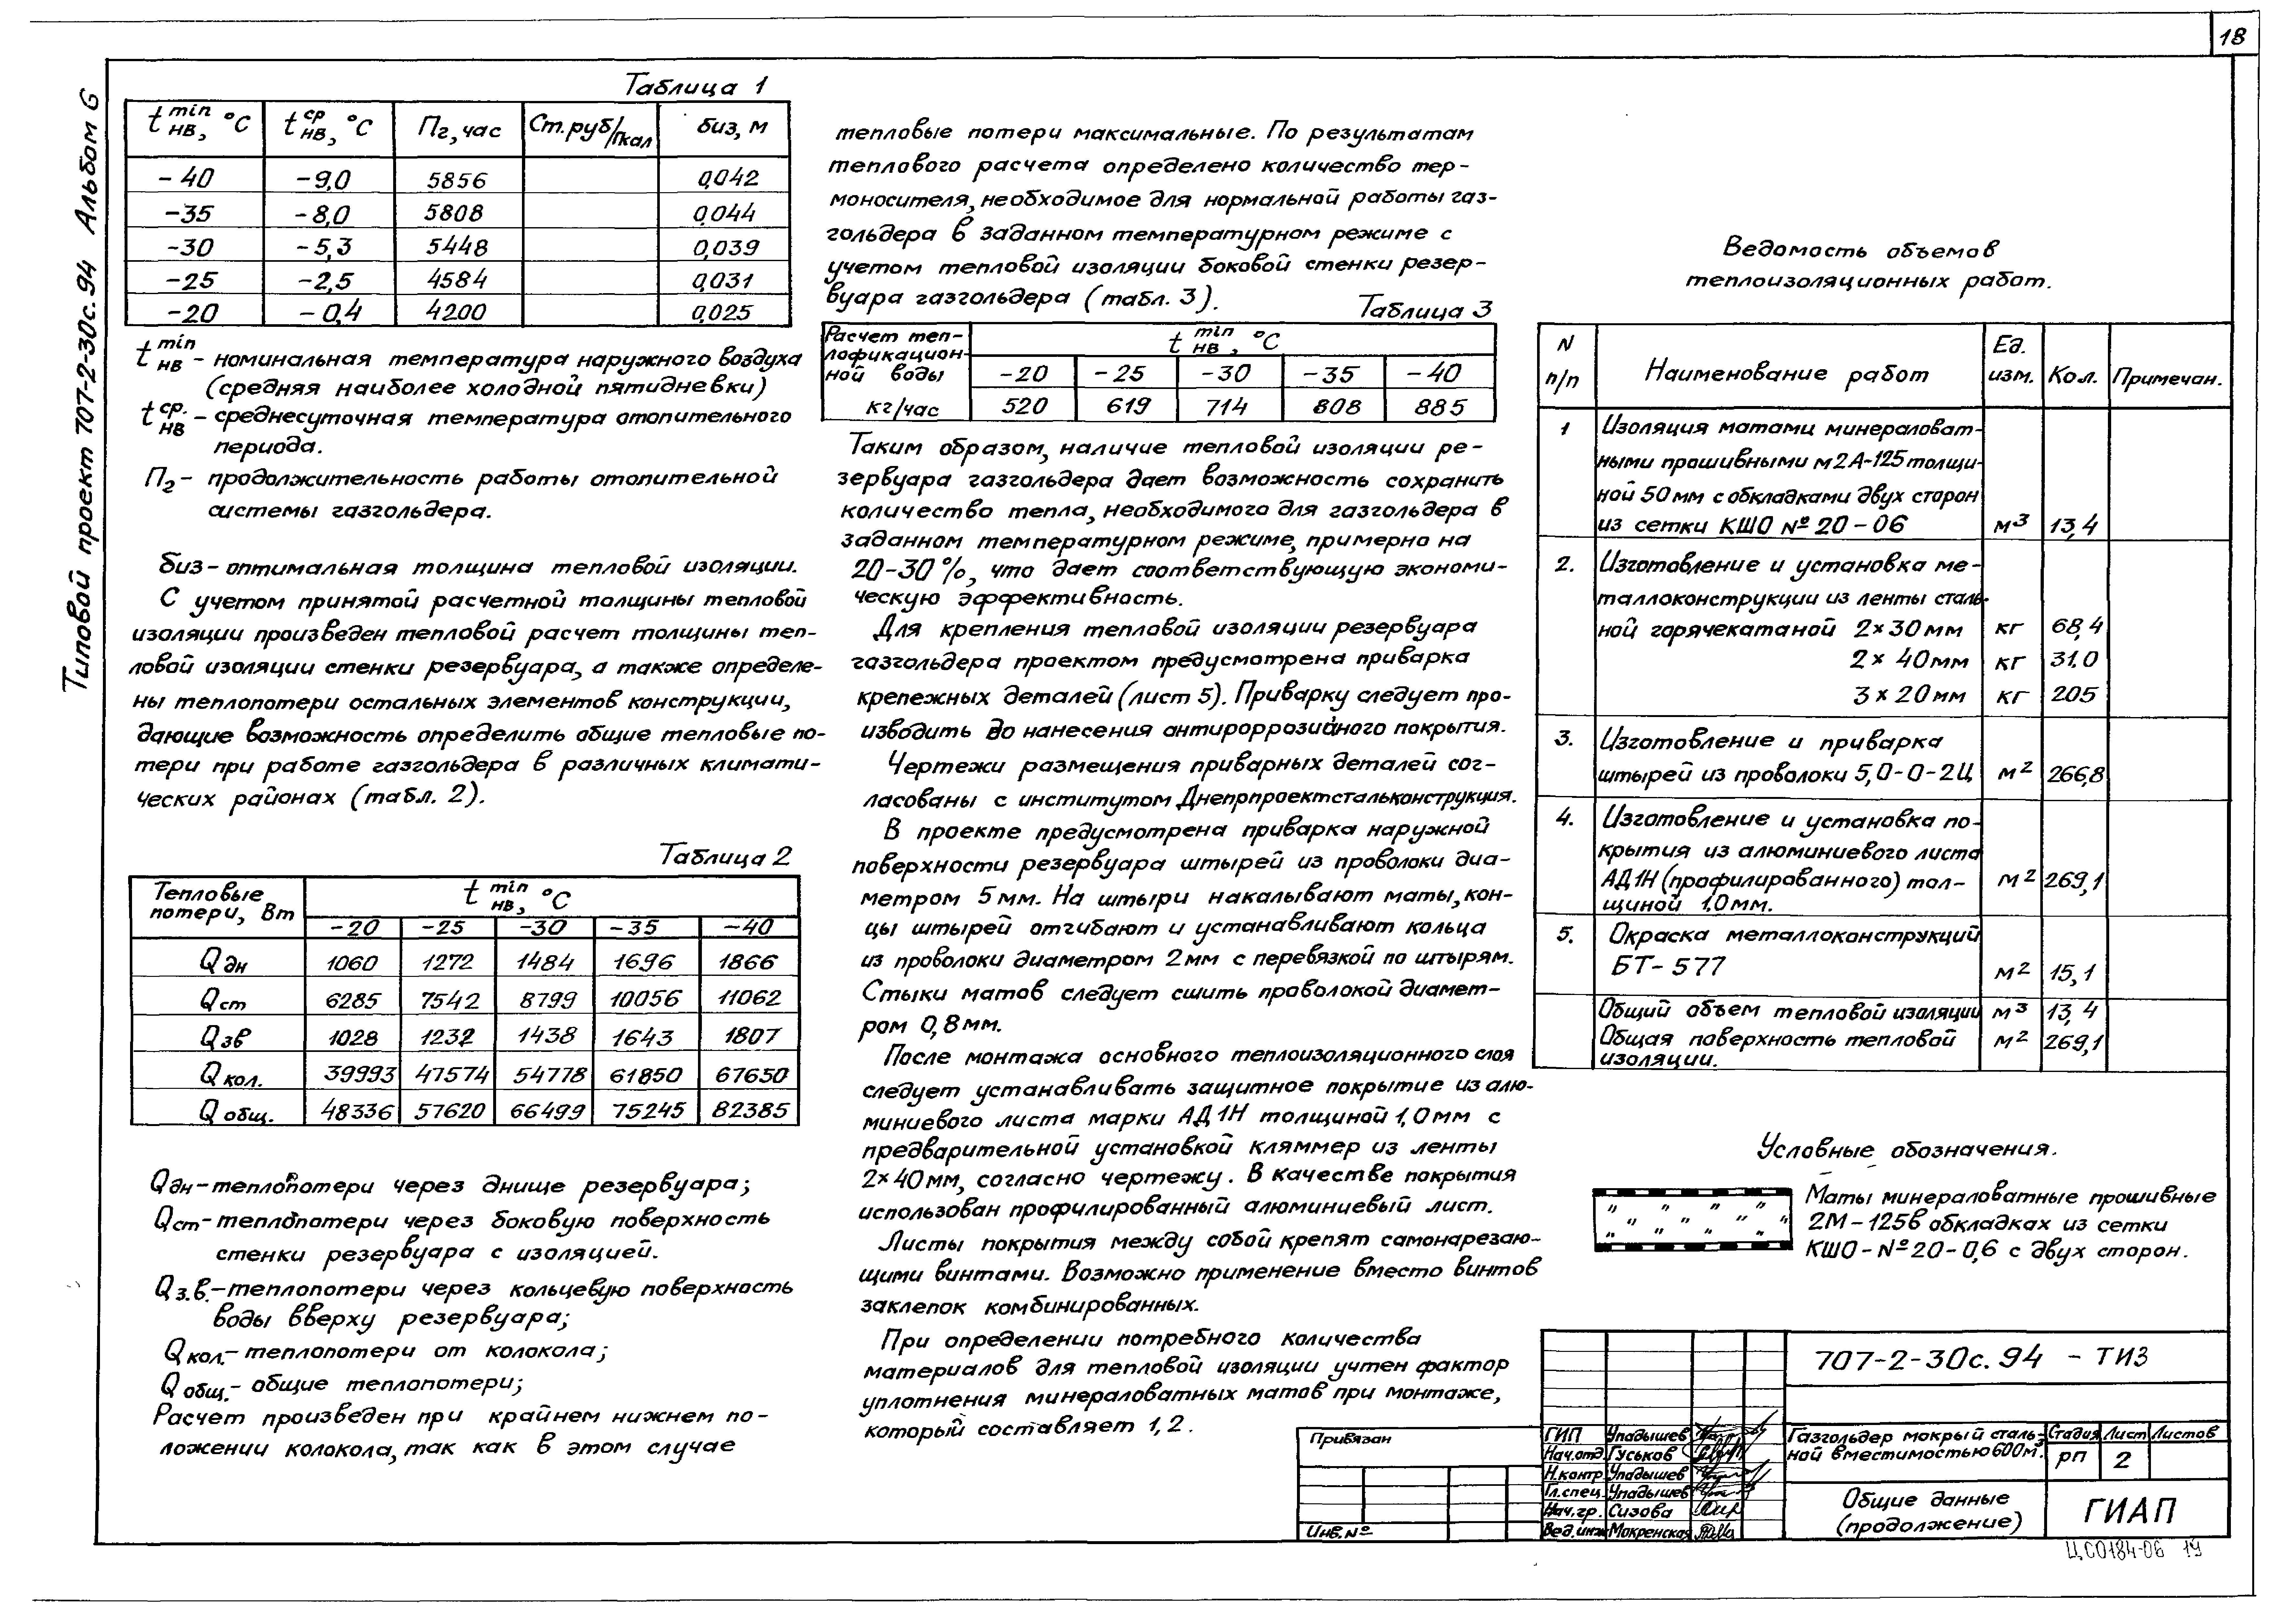 18
Типовой проект 707-2-30с.94 Альбом 6
Таблица 1
t min нв, °С | t ср нв, °С | Пг, час | Ст.руб/Гкал | биз, м
-40 | -9,0 | 5856 | | 0,042
-35 | -8,0 | 5808 | | 0,044
-30 | -5,3 | 5448 | | 0,039
-25 | -2,5 | 4584 | | 0,031
-20 | -0,4 | 4200 | | 0,025
t min нв - номинальная температура наружного воздуха
(средняя наиболее холодной пятидневки)
t ср. нв - среднесуточная температура отопительного
периода.
Пг - продолжительность работы отопительной
системы газгольдера.
биз - оптимальная толщина тепловой изоляции.
С учетом принятой расчетной толщины тепловой
изоляции произведен тепловой расчет толщины теп-
ловой изоляции стенки резервуара, а также определе-
ны теплопотери остальных элементов конструкции,
дающие возможность определить общие тепловые по-
тери при работе газгольдера в различных климати-
ческих районах (табл. 2).
Таблица 2
Тепловые потери, Вт | t min нв, °С
-20 | -25 | -30 | -35 | -40
Q дн | 1060 | 1272 | 1484 | 1696 | 1866
Q ст | 6285 | 7542 | 8799 | 10056 | 11062
Q зв | 1028 | 1232 | 1438 | 1643 | 1807
Q кол. | 39993 | 47574 | 54778 | 61850 | 67650
Q общ. | 48336 | 57620 | 66499 | 75245 | 82385
Q дн - теплопотери через днище резервуара;
Q ст - теплопотери через боковую поверхность
стенки резервуара с изоляцией.
Q з.в. - теплопотери через кольцевую поверхность
воды вверху резервуара;
Q кол. - теплопотери от колокола;
Q общ. - общие теплопотери;
Расчет произведен при крайнем нижнем по-
ложении колокола, так как в этом случае
тепловые потери максимальные. По результатам
теплового расчета определено количество тер-
моносителя, необходимое для нормальной работы газ-
гольдера в заданном температурном режиме с
учетом тепловой изоляции боковой стенки резер-
вуара газгольдера (табл. 3).
Таблица 3
Расчет теп-
лофикацион-
ной воды | t min нв, °С
-20 | -25 | -30 | -35 | -40
кг/час | 520 | 619 | 714 | 808 | 885
Таким образом, наличие тепловой изоляции ре-
зервуара газгольдера дает возможность сохранить
количество тепла, необходимого для газгольдера в
заданном температурном режиме, примерно на
20-30%, что дает соответствующую экономи-
ческую эффективность.
Для крепления тепловой изоляции резервуара
газгольдера проектом предусмотрена приварка
крепежных деталей (лист 5). Приварку следует про-
изводить до нанесения антироррозийного покрытия.
Чертежи размещения приварных деталей сог-
ласованы с институтом Днепрпроектстальконструкция.
В проекте предусмотрена приварка наружной
поверхности резервуара штырей из проволоки диа-
метром 5мм. На штыри накалывают маты, кон-
цы штырей отгибают и устанавливают кольца
из проволоки диаметром 2мм с перевязкой по штырям.
Стыки матов следует сшить проволокой диамет-
ром 0,8мм.
После монтажа основного теплоизоляционного слоя
следует устанавливать защитное покрытие из алю-
миниевого листа марки АД1Н толщиной 1,0мм с
предварительной установкой кляммер из ленты
2×40мм, согласно чертежу. В качестве покрытия
использован профилированный алюминиевый лист.
Листы покрытия между собой крепят самонарезаю-
щими винтами. Возможно применение вместо винтов
заклепок комбинированных.
При определении потребного количества
материалов для тепловой изоляции учтен фактор
уплотнения минераловатных матов при монтаже,
который составляет 1,2.
Ведомость объемов
теплоизоляционных работ.
N п/п | Наименование работ | Ед. изм. | Кол. | Примечан.
1 Изоляция матами минераловат-
ными прошивными м2А-125 толщи-
ной 50мм с обкладками двух сторон
из сетки КШО №20-06 | м3 | 13,4
2. Изготовление и установка ме-
таллоконструкции из ленты сталь-
ной горячекатаной 2×30мм | кг | 68,4
2×40мм | кг | 31.0
3×20мм | кг | 205
3. Изготовление и приварка
штырей из проволоки 5,0-0-2Ц | м2 | 266,8
4. Изготовление и установка по-
крытия из алюминиевого листа
АД1Н (профилированного) тол- | м2 | 269,1
щиной 1.0мм.
5. Окраска металлоконструкций
БТ-577 | м2 | 15,1
Общий объем тепловой изоляции | м3 | 13,4
Общая поверхность тепловой | м2 | 269,1
изоляции.
Условные обозначения.
Маты минераловатные прошивные
2М-125в обкладках из сетки
КШО-№20-0,6 с двух сторон.
Привязан
Инв.№
707-2-30с.94 - ТИЗ
ГИП Упадышев
Нач.отд. Гуськов
Н.контр. Упадышев
Гл.спец. Упадышев
Нач.гр. Сизова
Вед.инж Мокренская
Газгольдер мокрый сталь-
ной вместимостью 600м3.
Стадия | Лист | Листов
РП | 2
Общие данные
(продолжение)
ГИАП
ЦС0184-06 19